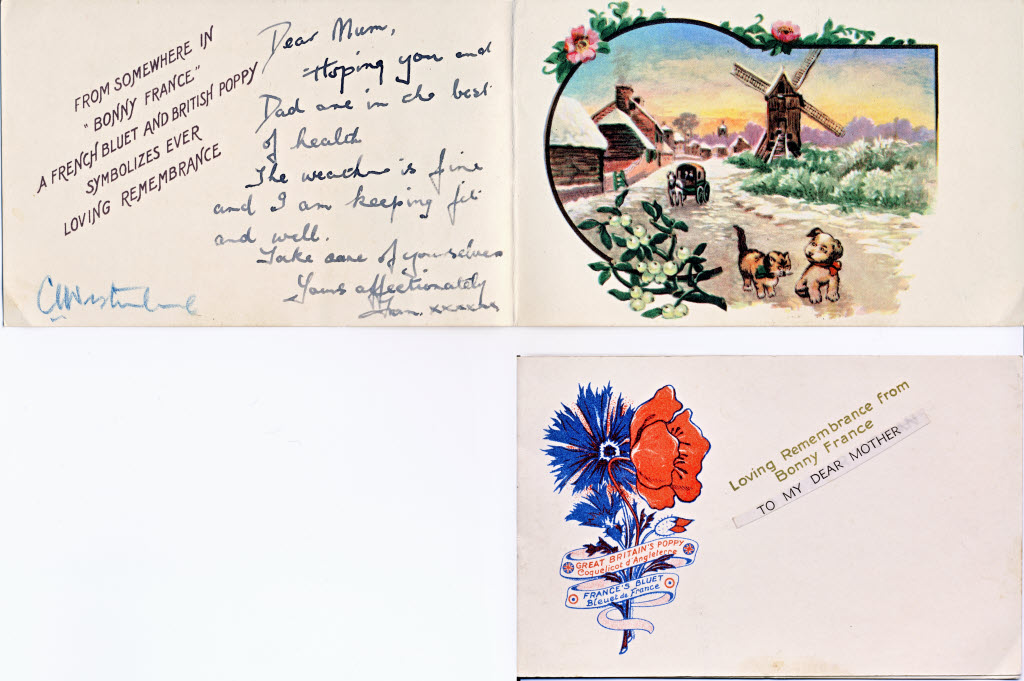 FROM SOMEWHERE IN
"BONNY FRANCE."
A FRENCH BLUET AND BRITISH POPPY
SYMBOLIZES EVER
LOVING REMEMBRANCE
Dear Mum,
Hoping you and
Dad are in the best
of health
The weather is fine
and I am keeping fit
and well.
Take care of yourselves
Yours affectionately
xxxxxx
Loving Remembrance from
Bonny France
TO MY DEAR MOTHER
GREAT BRITAIN'S POPPY
Coquelicot d'Angleterre
FRANCE'S BLUET
Bleuet de France